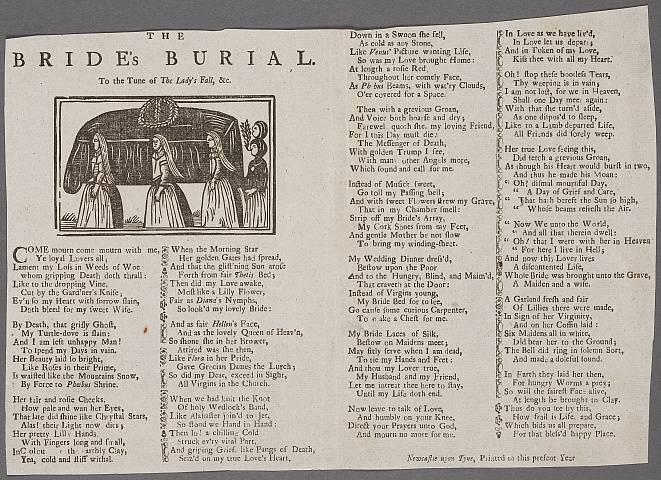 THE
BRIDE's BURIAL.
To the Tune of The Lady's Fall, &c.
COME mourn come mourn with me,
Ye loyal Lovers all;
Lament my Loss in Weeds of Woe
whom gripping Death doth thrall:
Like to the dropping Vine,
Cut by the Gard'ner's Knife;
Ev'n so my Heart with sorrow slain,
Doth bleed for my sweet Wife.
By Death, that grisly Ghost,
My Turtle-dove is slain;
And I am left unhappy Man!
To spend my Days in vain.
Her Beauty laid so bright,
Like Roses in their Prime,
Is wasted like the Mountains Snow,
By Force to Phœbus Shrine.
Her fair and rosie Cheeks,
How pale and wan her Eyes,
That late did shine like Chrystal Stars,
Alas! their Light now dies;
Her pretty Lilly Hands
With Fingers long and small,
In Colour the earthly Clay,
Yea, cold and stiff withal.
When the Morning Star
Her golden Gates had spread,
And that the glist'ning Sun arose
Forth from fair Thetis Bed;
Then did my Love awake,
Most like a Lilly Flower,
Fair as Diana's Nymphs,
So look'd my lovely Bride:
And as fair Hellen's Face,
And as the lovely Queen of Heav'n,
So shone she in her Brower,
Attired was she then,
Like Flora in her Pride,
Gave Grecian Dames the Lurch;
So did my Dear, exceed in Sight,
All Virgins in the Church.
When we had knit the Knot
Of holy Wedlock's Band,
Like Alabaster join'd to Jet,
So stood we Hand in Hand:
Then lo! a chilling Cold
Struck ev'ry vital Part,
And griping Grief, like Pangs of Death,
Seiz'd on my true Love's Heart.
Down in a Swoon she fell,
As cold as any Stone,
Like Venus' Picture wanting Life,
So was my Love brought Home:
At length a rosie Red,
Throughout her comely Face,
As Phœbus Beams, with wat'ry Clouds,
O'er covered for a Space.
Then with a grevious Groan,
And Voice both hoarse and dry;
Farewel quoth she, my loving Friend,
For I this Day must die:
The Messenger of Death,
With golden Trump I see,
With many other Angels more,
Which sound and call for me.
Instead of Musick sweet,
Go toll my Passing bell;
And with sweet Flowers strew my Grave,
That in my Chamber smell:
Strip off my Bride's Array,
My Cork Shoes from my Feet,
And gentle Mother be not slow
To bring my winding-sheet.
My Wedding Dinner dress'd,
Bestow upon the Poor
And to the Hungry, Blind, and Maim'd,
That craveth at the Door:
Instead of Virgins young,
My Bride Bed for to see,
Go cause some curious Carpenter,
To make a Chest for me.
My Bride Laces of Silk,
Bestow on Maidens meet;
May fitly serve when I am dead,
To tie my Hands and Feet:
And thou my Lover true,
My Husband and my Friend,
Let me intreat thee here to stay,
Until my Life doth end.
Now leave to talk of Love,
And humbly on your Knee,
Direct your Prayers unto God,
And mourn no more for me.
In Love as we have liv'd,
In Love let us depart;
And in Token of my Love,
Kiss thee with all my Heart.
Oh! stop these bootless Tears,
Thy weeping is in vain;
I am not lost, for we in Heaven,
Shall one Day meet again:
With that she turn'd aside,
As one dispos'd to sleep,
Like to a Lamb departed Life,
All Friends did sorely weep.
Her true Love seeing this,
Did fetch a grevious Groan,
As though his Heart would burst in two,
And thus he made his Moan:
" Oh! dismal mournful Day,
" A Day of Grief and Care,
" That hath bereft the Sun so high,
" Whose beams refresh the Air.
" Now We unto the World,
" And all that therein dwell:
" Oh! that I were with her in Heaven
" For here I live in Hell;
And now this Lover lives
A discontented Life,
Whose Bride was brought unto the Grave,
A Maiden and a wife.
A Garland fresh and fair
Of Lillies there were made,
In Sign of her Virginity,
And on her Coffin laid:
Six Maidens all in white,
Did bear her to the Ground;
The Bell did ring in solemn Sort,
And made a doleful sound.
In Earth they laid her then,
For hungry Worms a prey;
So will the fairest Face alive,
At length be brought to Clay.
Thus do you see by this,
How frail is Life, and Grace;
Which bids us all prepare,
For that bless'd happy Place.
Newcastle upon Tyne, Printed in this present Year